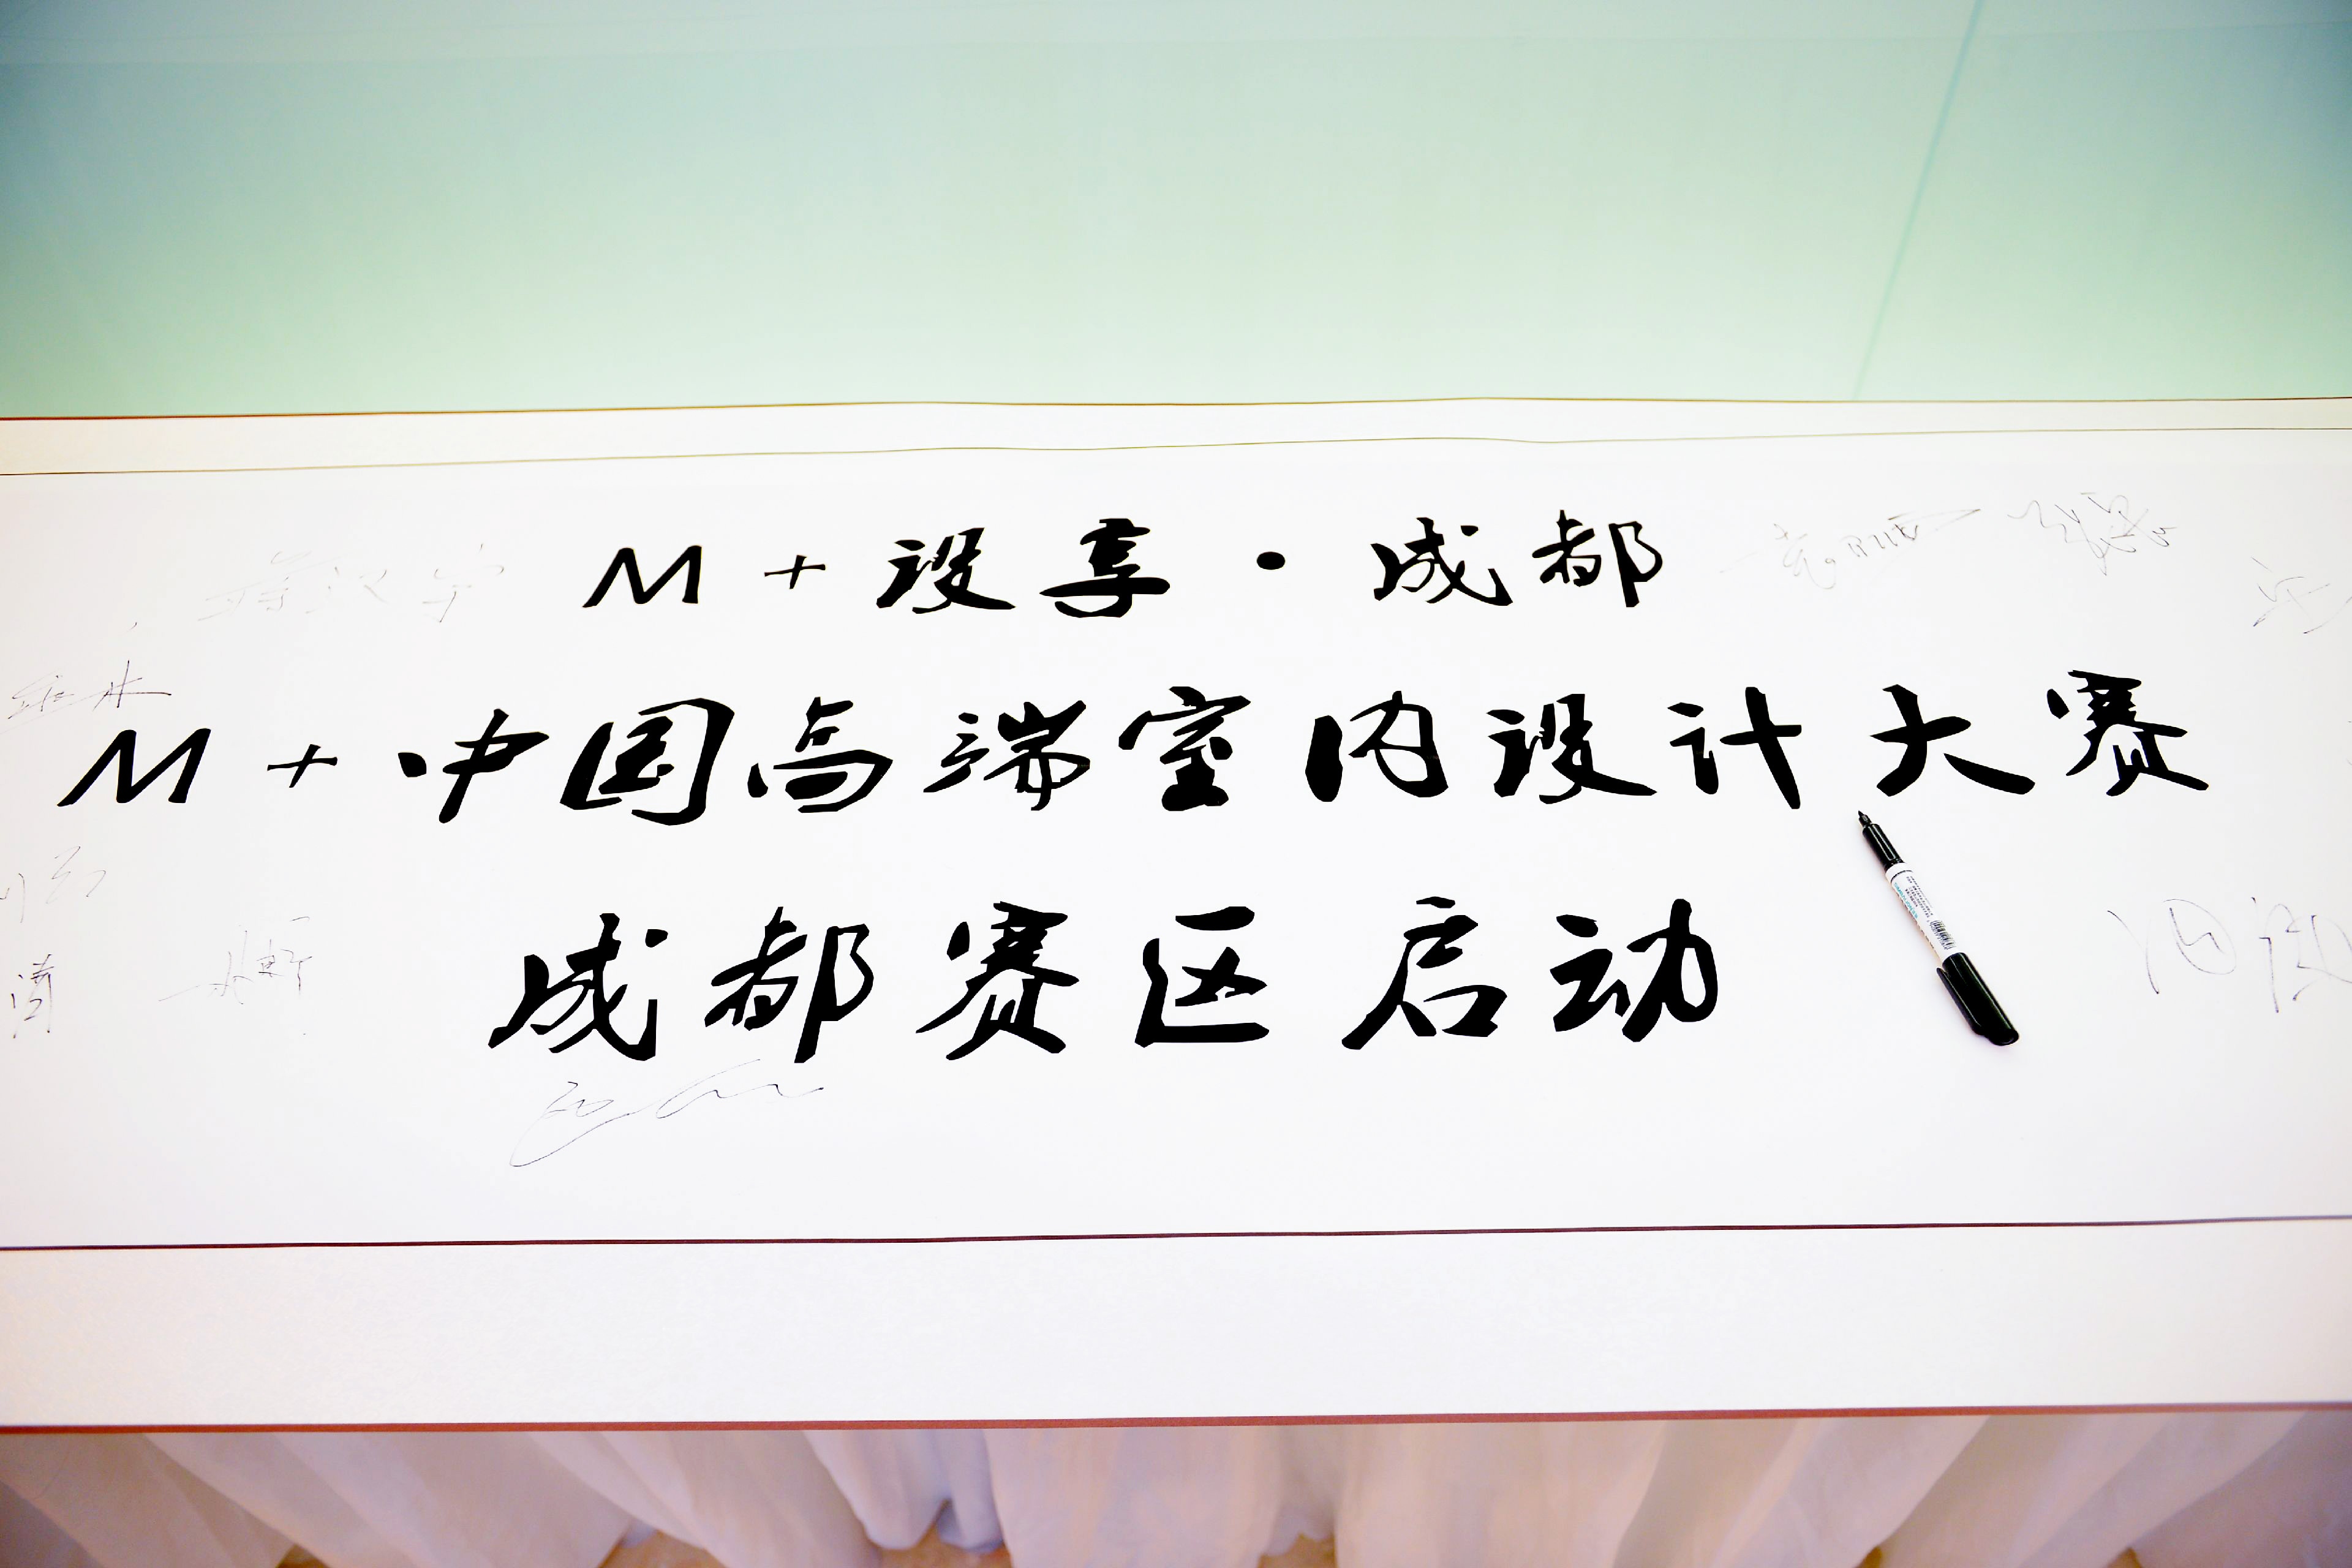 M+设享·成都
M+中国高端室内设计大赛
成都赛区启动